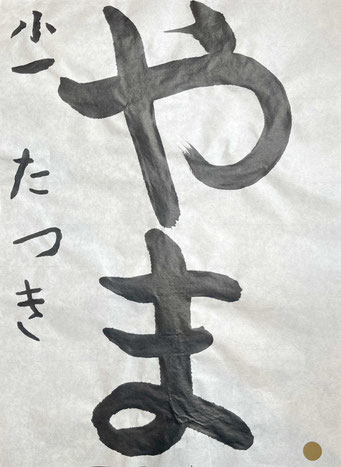 やま
小一 たつき